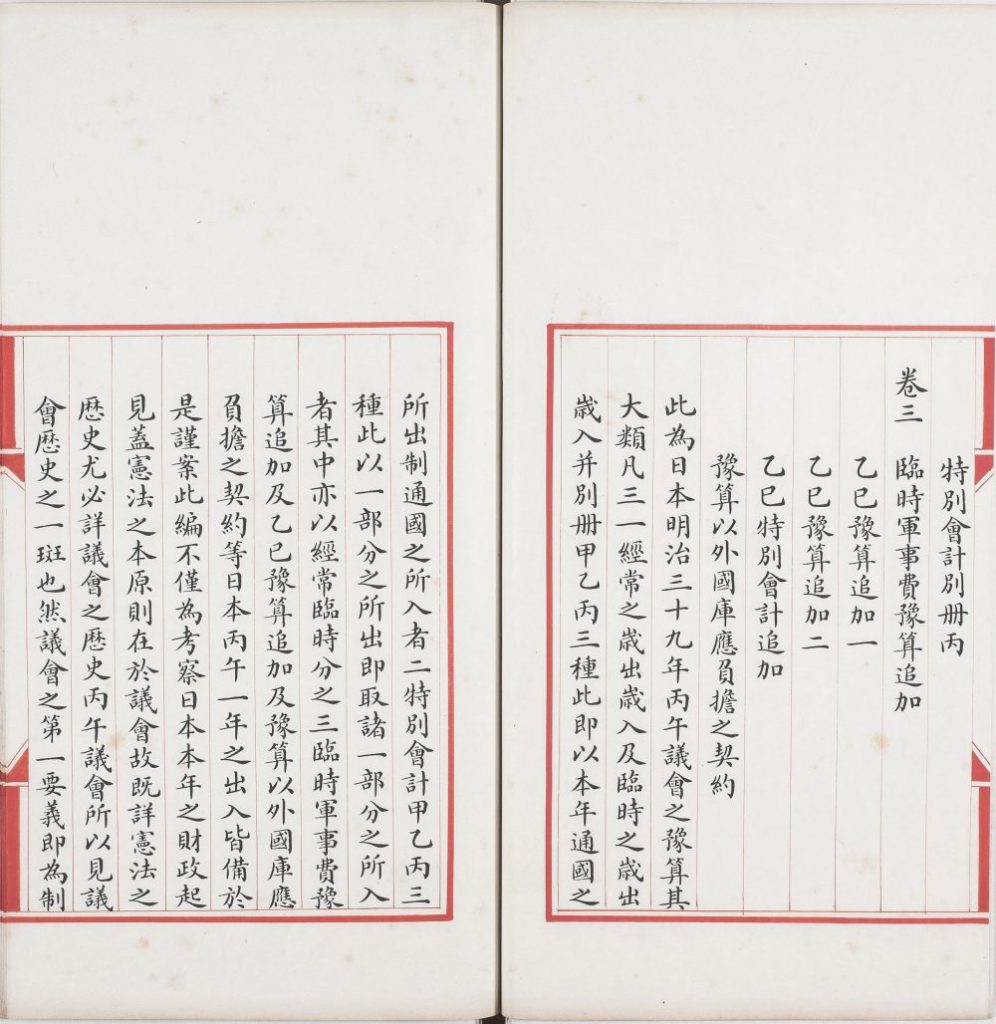 特別會計別册丙
卷三　臨時軍事費豫算追加
乙巳豫算追加一
乙巳豫算追加二
乙巳特別會計追加
豫算以外國庫應負擔之契約
此為日本明治三十九年丙午議會之豫算其
大類凡三一經常之歲出歲入及臨時之歲出
歲入并別册甲乙丙三種此即以本年通國之
所出制通國之所入者二特別會計甲乙丙三
種此以一部分之所出即取諸一部分之所入
者其中亦以經常臨時分之三臨時軍事費豫
算追加及乙巳豫算追加及豫算以外國庫應
負擔之契約等日本丙午一年之出入皆備於
是謹案此編不僅為考察日本本年之財政起
見蓋憲法之本原則在於議會故既詳憲法之
歷史尤必詳議會之歷史丙午議會所以見議
會歷史之一斑也然議會之第一要義即為制